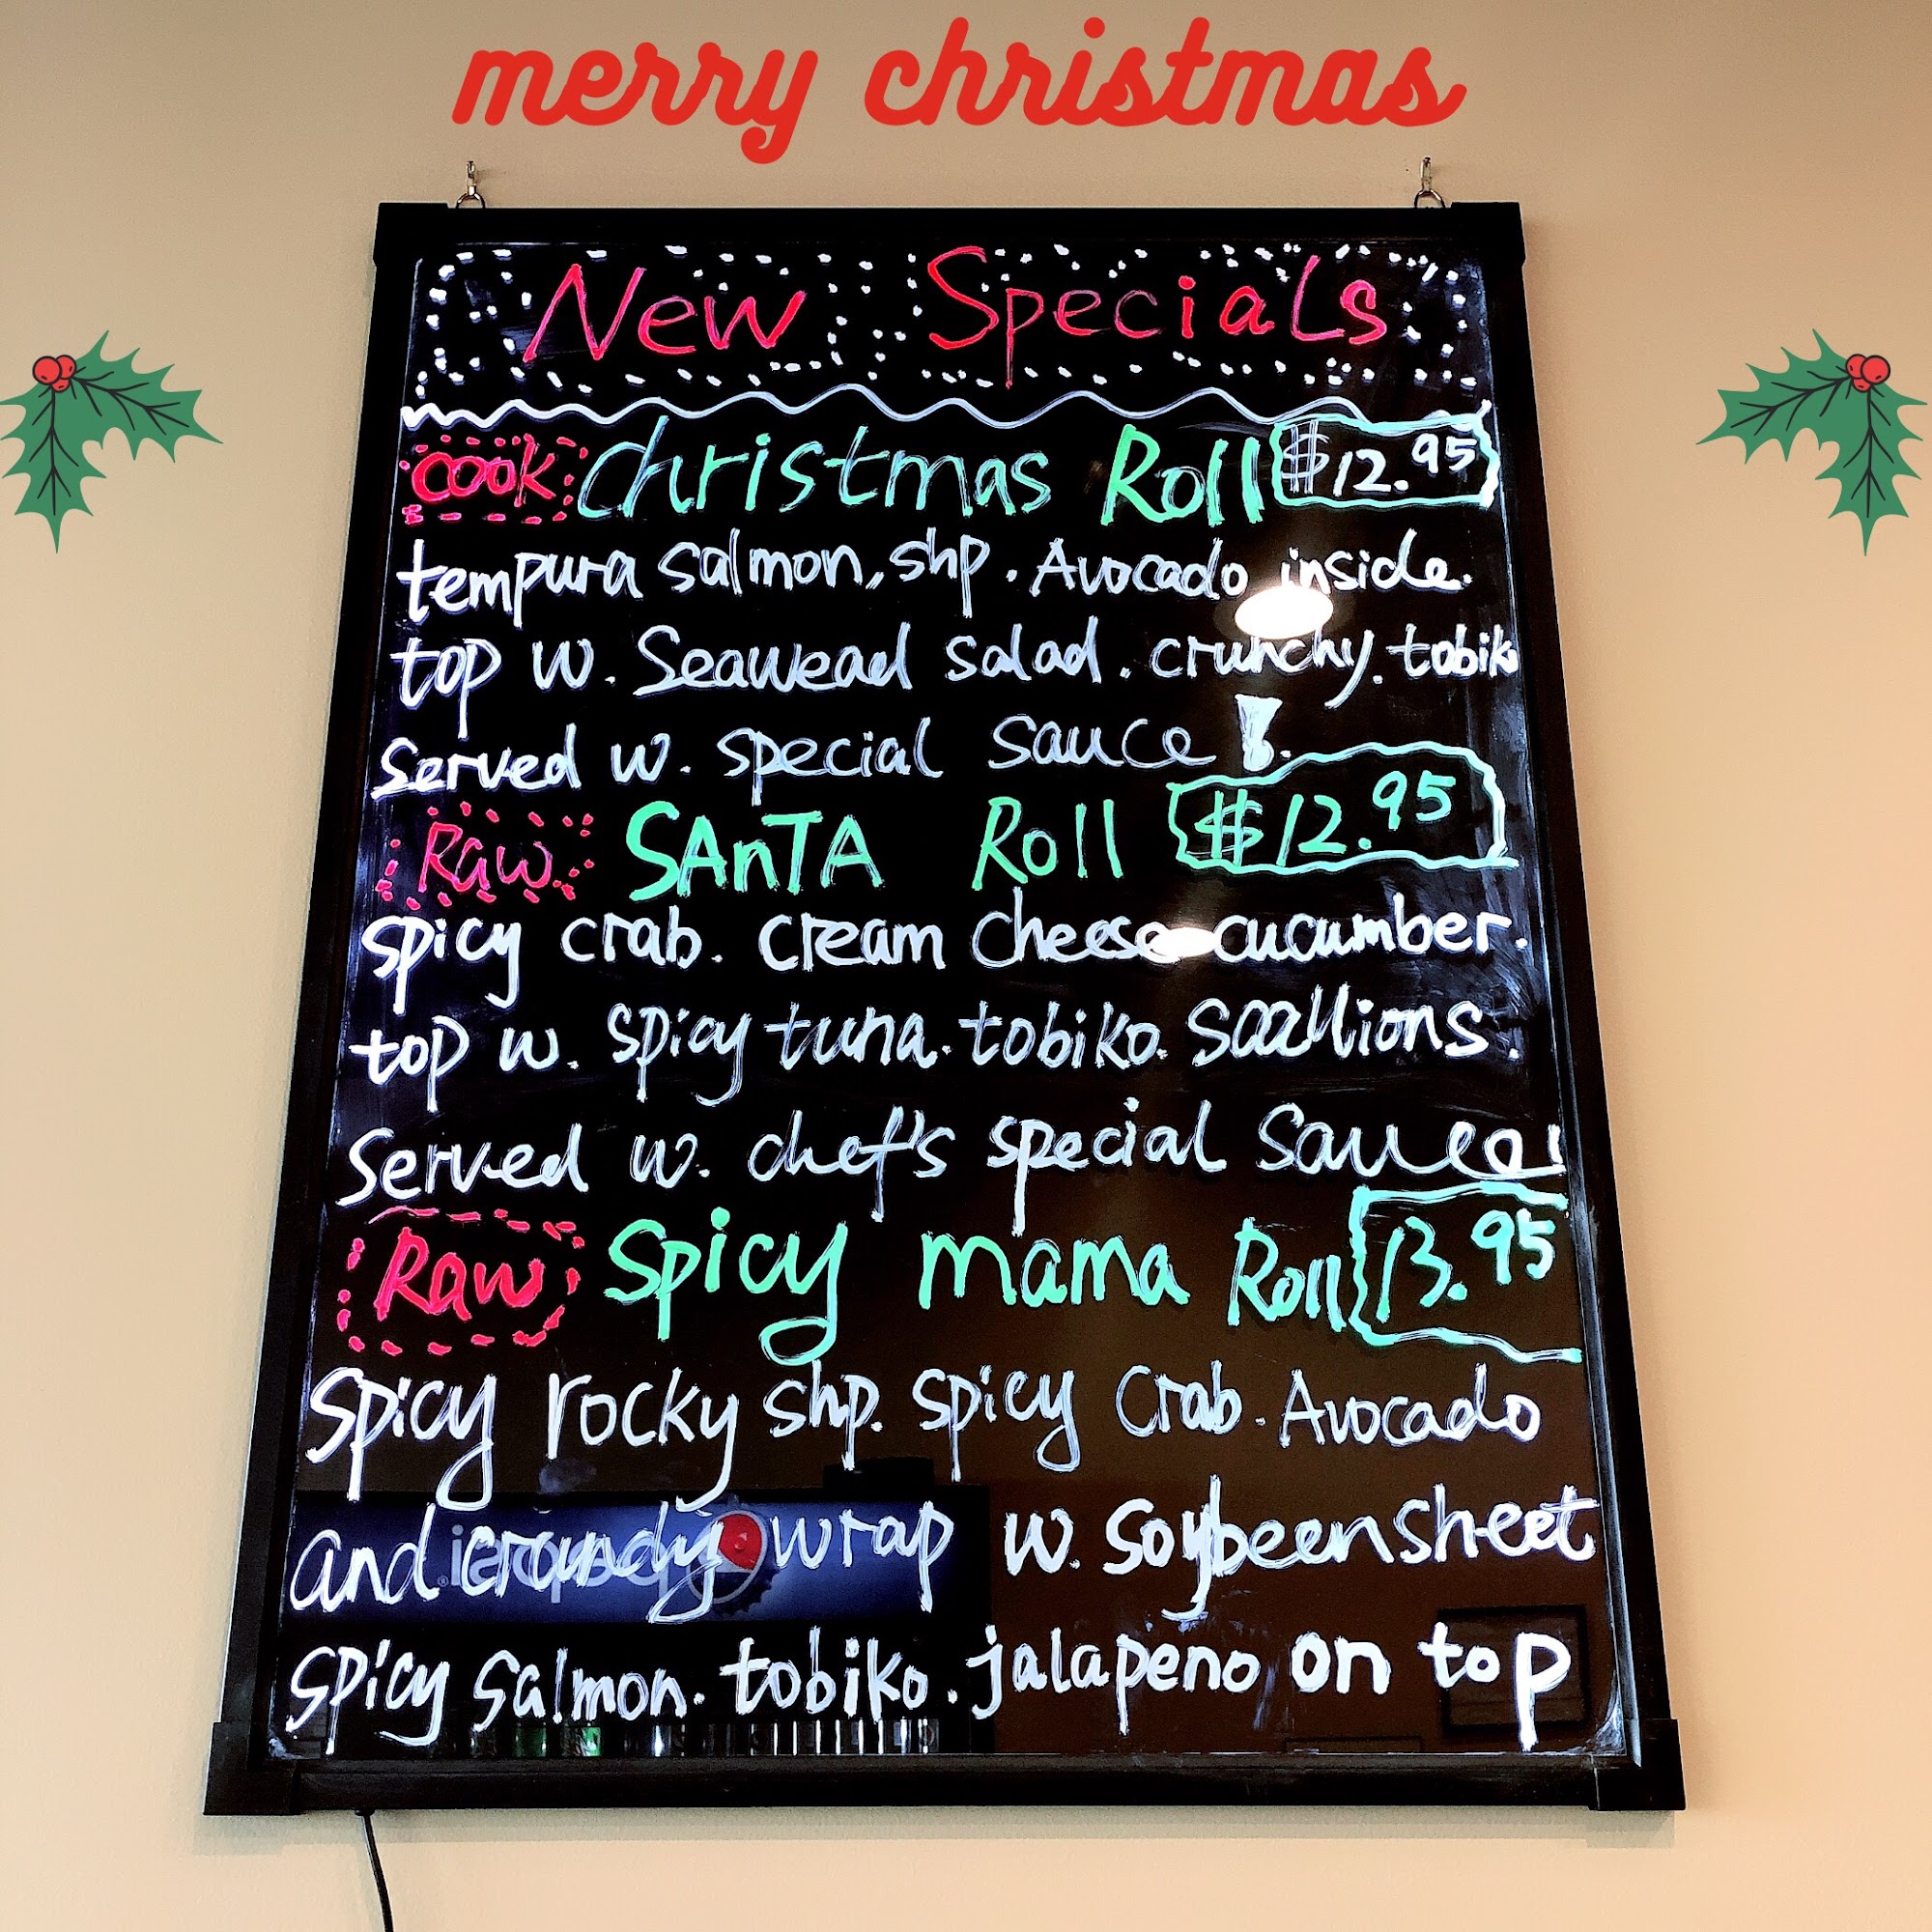 merry christmas
New Specials
cook Christmas Roll $12.95
tempura salmon, shp. Avocado inside.
top w. Seawead salad. crunchy. tobiko
Served w. special sauce
Raw SAnTA Roll $12.95
spicy crab. cream cheese cucumber.
top w. spicy tuna. tobiko. scallions.
Served w. chef's special sauce!
Raw Spicy mama Roll 13.95
Spicy rocky shp. spicy crab. Avocado
and wrap w. Soybeen sheet
spicy salmon. tobiko. jalapeno on top
pepsi